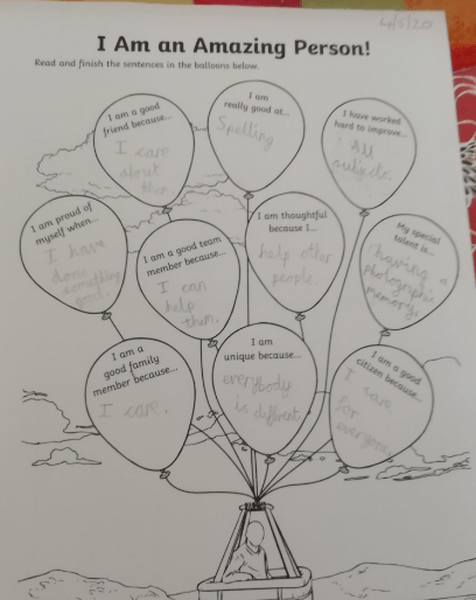 4/5/20
I Am an Amazing Person!
Read and finish the sentences in the balloons below.
I am a good
friend because...
I care
about
them.
I am
really good at...
Spelling
I have worked
hard to improve...
All
subjects.
I am proud of
myself when...
I have
done
something
good.
I am a good team
member because...
I can
help
them.
I am thoughtful
because I...
help other
people.
My special
talent is...
having a
photographic
memory.
I am a
good family
member because...
I care.
I am
unique because...
everybody
is different.
I am a good
citizen because...
I care
for
everyone.